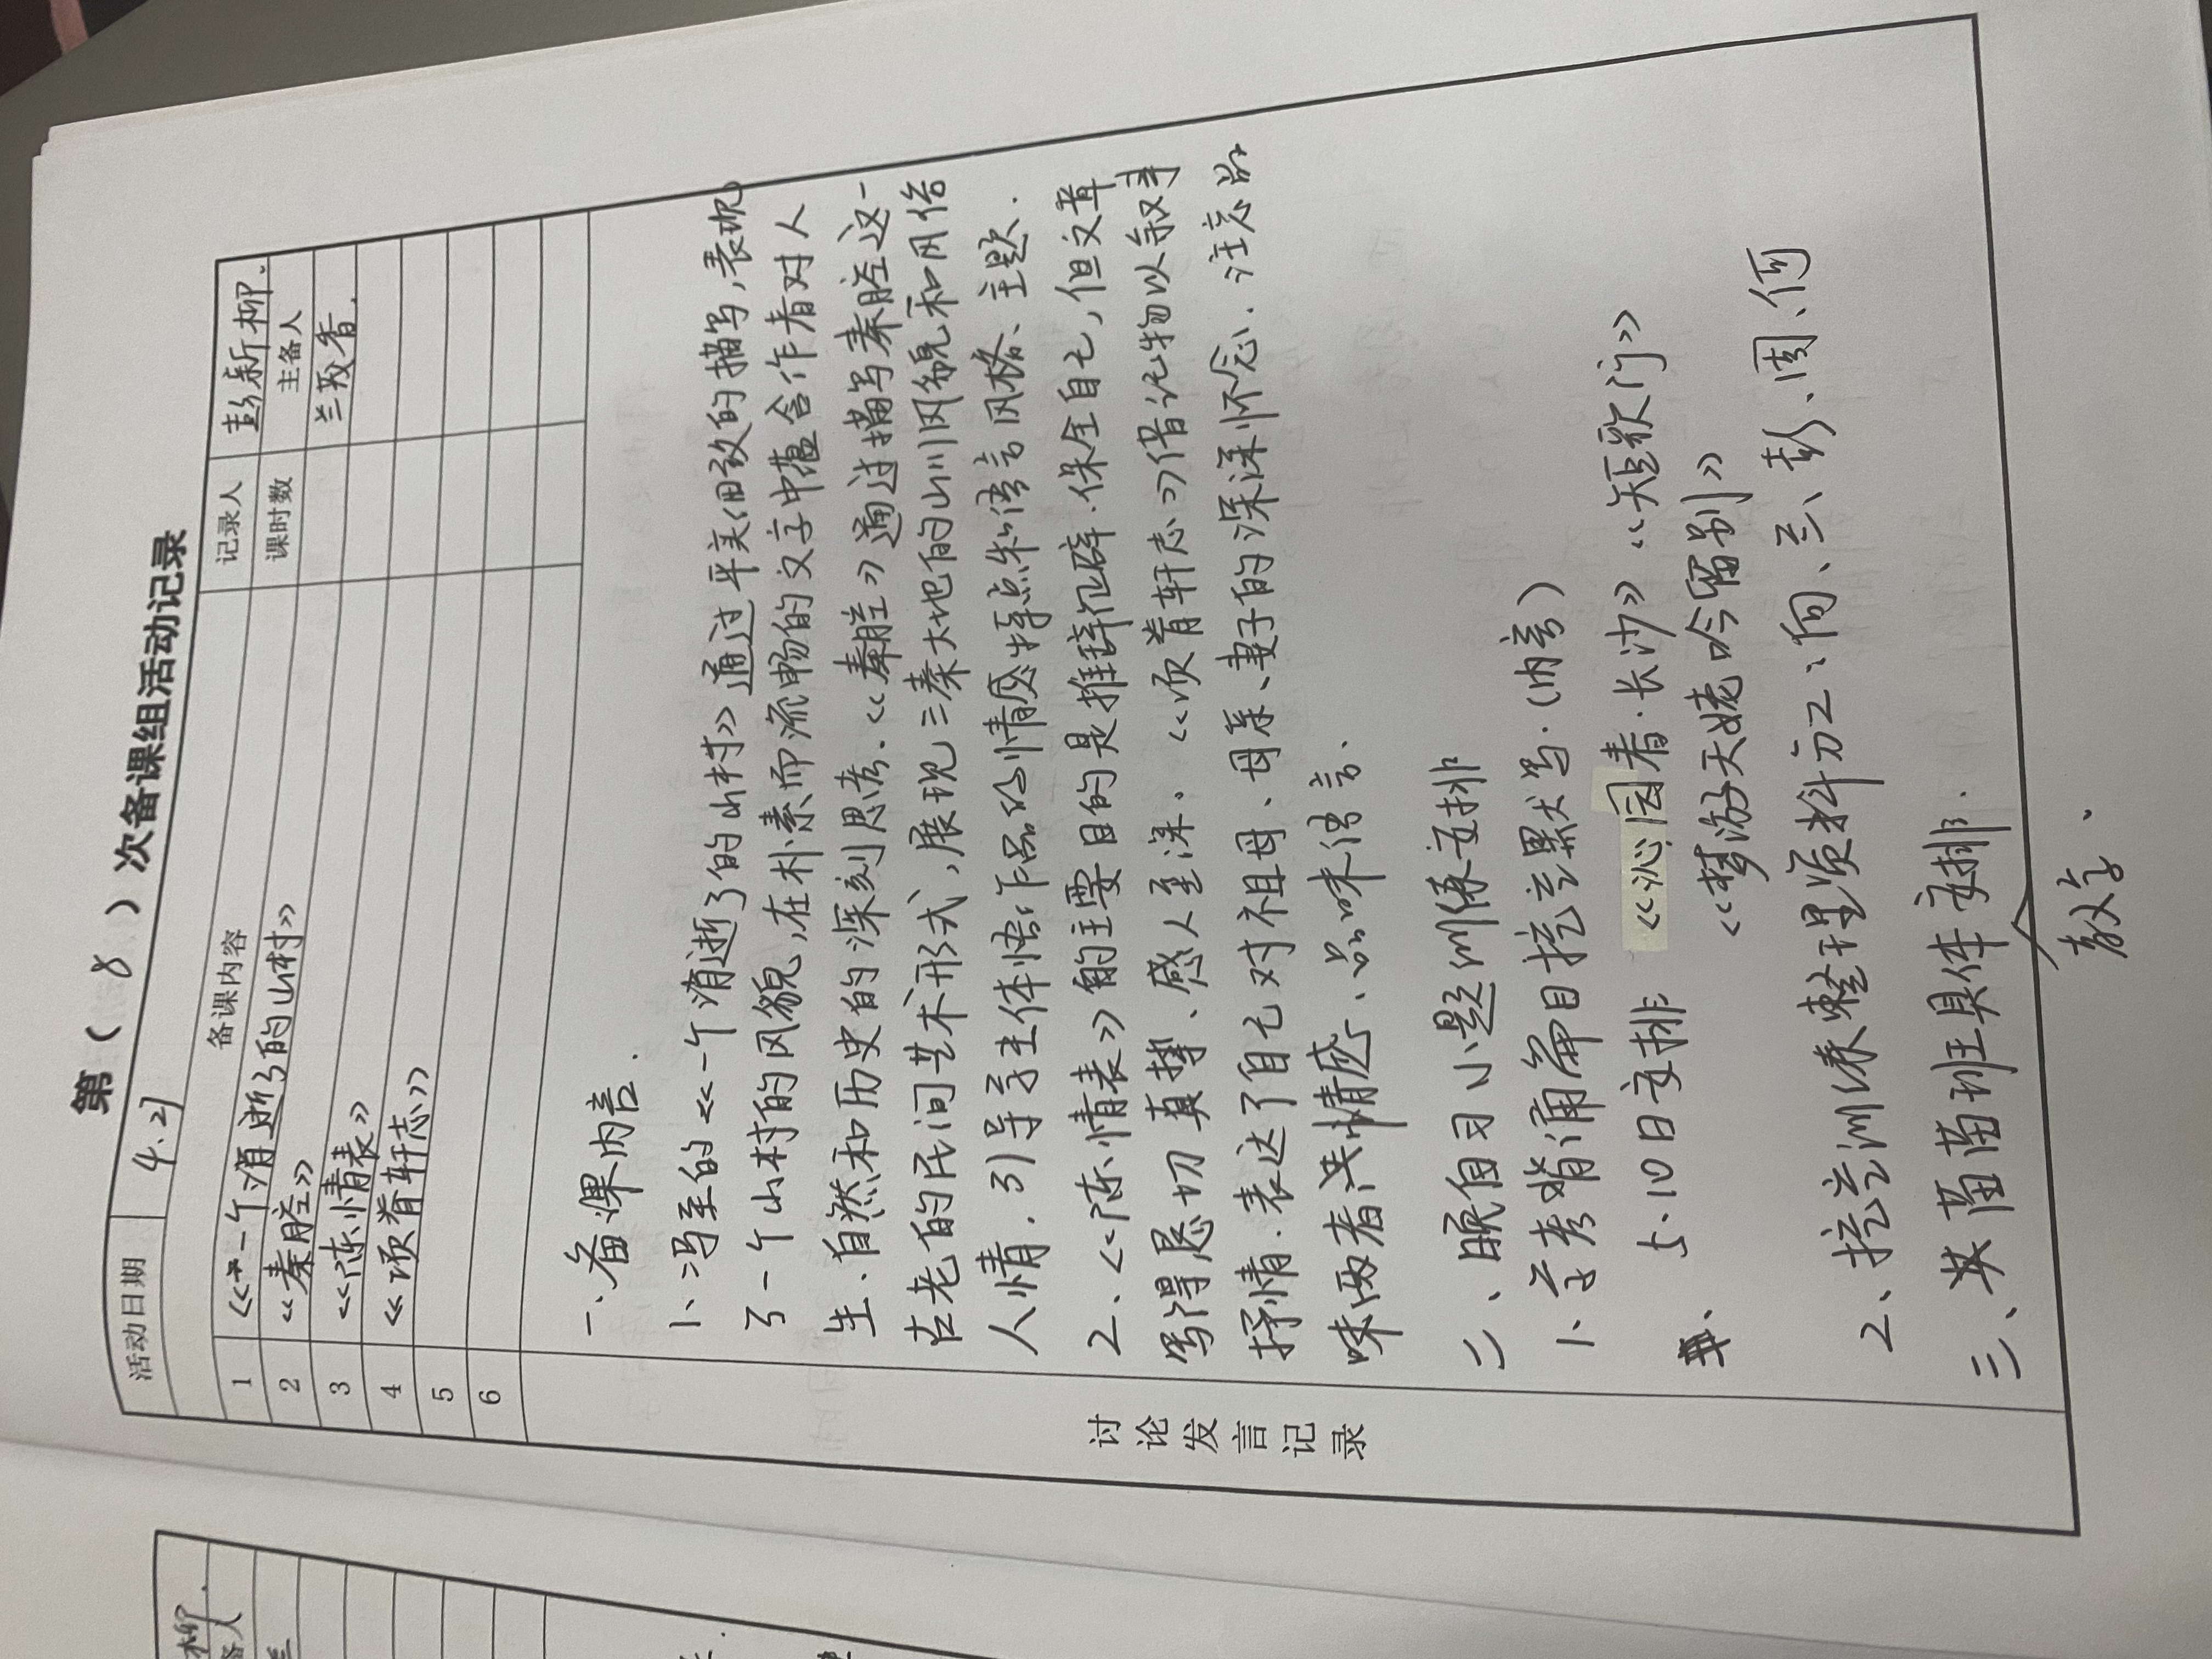 第（8）次备课组活动记录
活动日期 4.21 记录人 彭新柳.
备课内容 课时数 主备人
1 《一个消逝了的山村》 兰茂香.
2 《秦腔》
3 《陈情表》
4 《项脊轩志》
5
6
讨论发言记录
一、备课内容.
1、冯至的《一个消逝了的山村》通过平美细致的描写,表现
了一个山村的风貌,在朴素而流畅的文字中蕴含作者对人
生、自然和历史的深刻思考.《秦腔》通过描写秦腔这一
古老的民间艺术形式,展现三秦大地的山川风貌和风俗
人情.引导学生体悟作品的情感特点和语言风格、主题.
2、《陈情表》的主要目的是推辞征辟.保全自己,但文章
写得恳切真挚、感人至深.《项脊轩志》借记物以叙事
抒情.表达了自己对祖母、母亲、妻子的深深怀念.注意品
味两者共情感、品味语言.
二、晚自习小题训练安排
1、学考背诵篇目挖空默写.
5.10日安排 《沁园春·长沙》《短歌行》
《梦游天姥吟留别》
2、挖空训练整理资料分工:向、兰、彭、周、何
三、英苗苗班具体安排.
教学.
柳.
备人